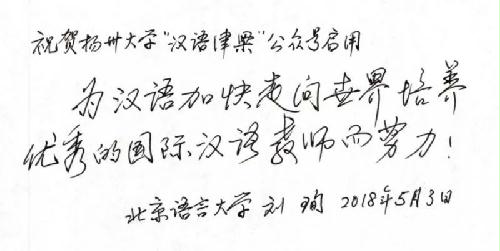 祝贺扬州大学“汉语津梁”公众号启用
为汉语加快走向世界培养
优秀的国际汉语教师而努力！
北京语言大学 刘珣 2018年5月3日